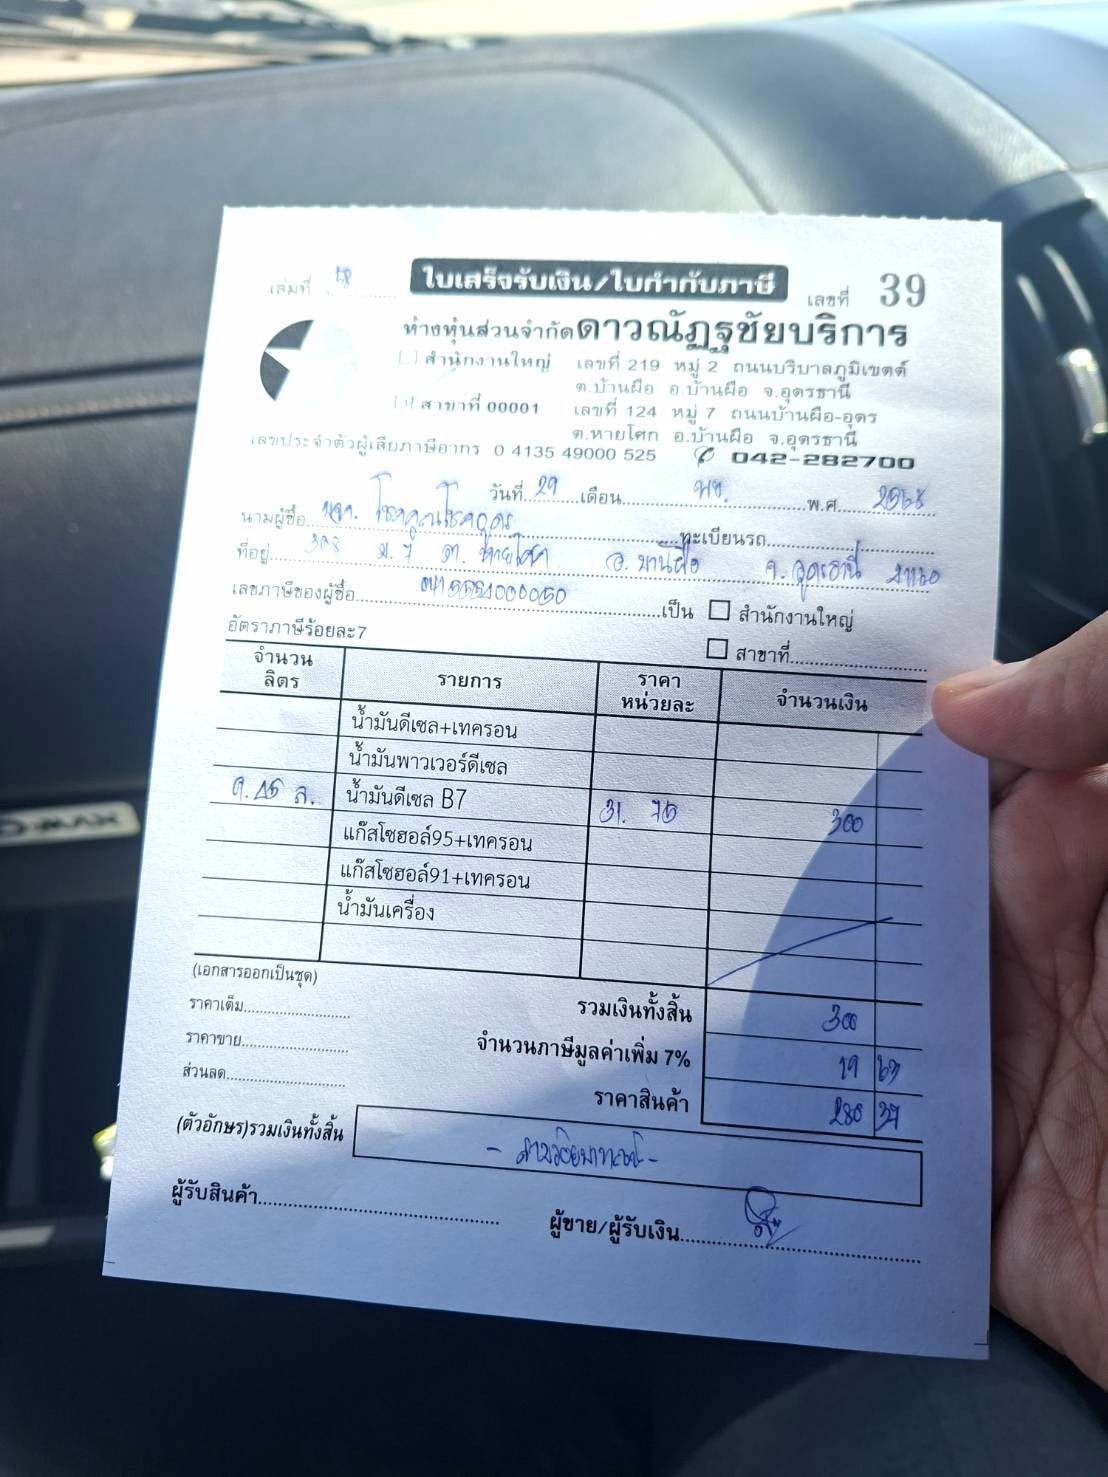 เล่มที่ 58 ใบเสร็จรับเงิน/ใบกำกับภาษี เลขที่ 39
ห้างหุ้นส่วนจำกัดดาวณัฏฐชัยบริการ
สำนักงานใหญ่ เลขที่ 219 หมู่ 2 ถนนบริบาลภูมิเขตต์
ต.บ้านผือ อ.บ้านผือ จ.อุดรธานี
สาขาที่ 00001 เลขที่ 124 หมู่ 7 ถนนบ้านผือ-อุดร
ต.หายโศก อ.บ้านผือ จ.อุดรธานี
เลขประจำตัวผู้เสียภาษีอากร 0 4135 49000 525 042-282700
วันที่ 29 เดือน พย. พ.ศ. 2568
นามผู้ซื้อ หจก. โชคคูณโชคอุดร ทะเบียนรถ
ที่อยู่ 308 ม.7 ต. หายโศก อ. บ้านผือ จ. อุดรธานี 41160
เลขภาษีของผู้ซื้อ เป็น สำนักงานใหญ่
อัตราภาษีร้อยละ7 สาขาที่
จำนวนลิตร รายการ ราคาหน่วยละ จำนวนเงิน
น้ำมันดีเซล+เทครอน
น้ำมันพาวเวอร์ดีเซล
9.45 ล. น้ำมันดีเซล B7 31.75 300
แก๊สโซฮอล์95+เทครอน
แก๊สโซฮอล์91+เทครอน
น้ำมันเครื่อง
(เอกสารออกเป็นชุด)
รวมเงินทั้งสิ้น 300
ราคาเต็ม
จำนวนภาษีมูลค่าเพิ่ม 7% 19 63
ราคาขาย
ราคาสินค้า 280 37
ส่วนลด
(ตัวอักษร)รวมเงินทั้งสิ้น - สามร้อยบาทถ้วน -
ผู้รับสินค้า ผู้ขาย/ผู้รับเงิน